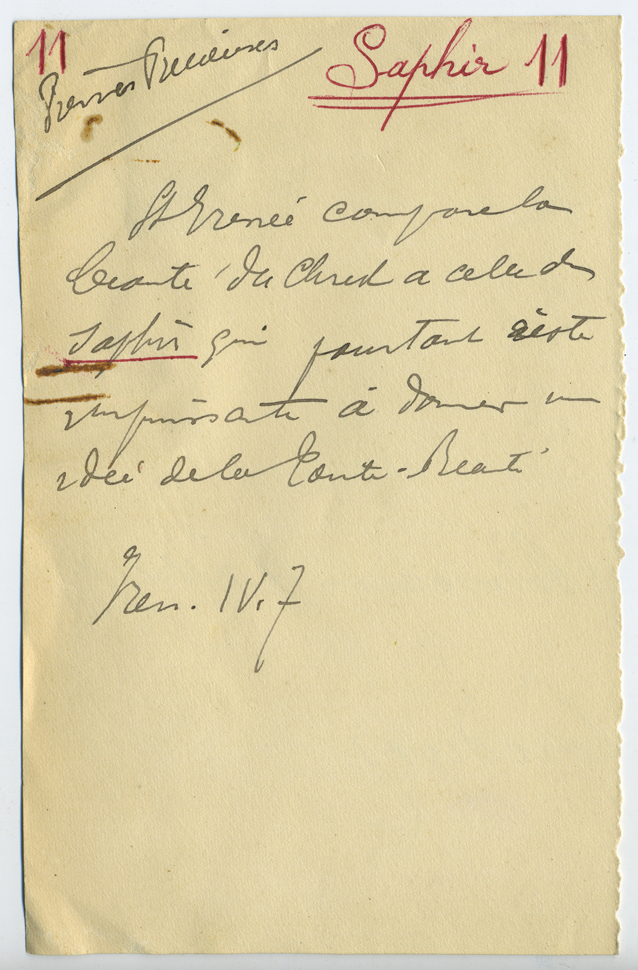 11
Pierres Précieuses
Saphir 11
St Irénée compare la
beauté du Christ a celle du
Saphir qui pourtant reste
impuissante à donner une
idée de la Toute-Beauté
Iren. IV. 7